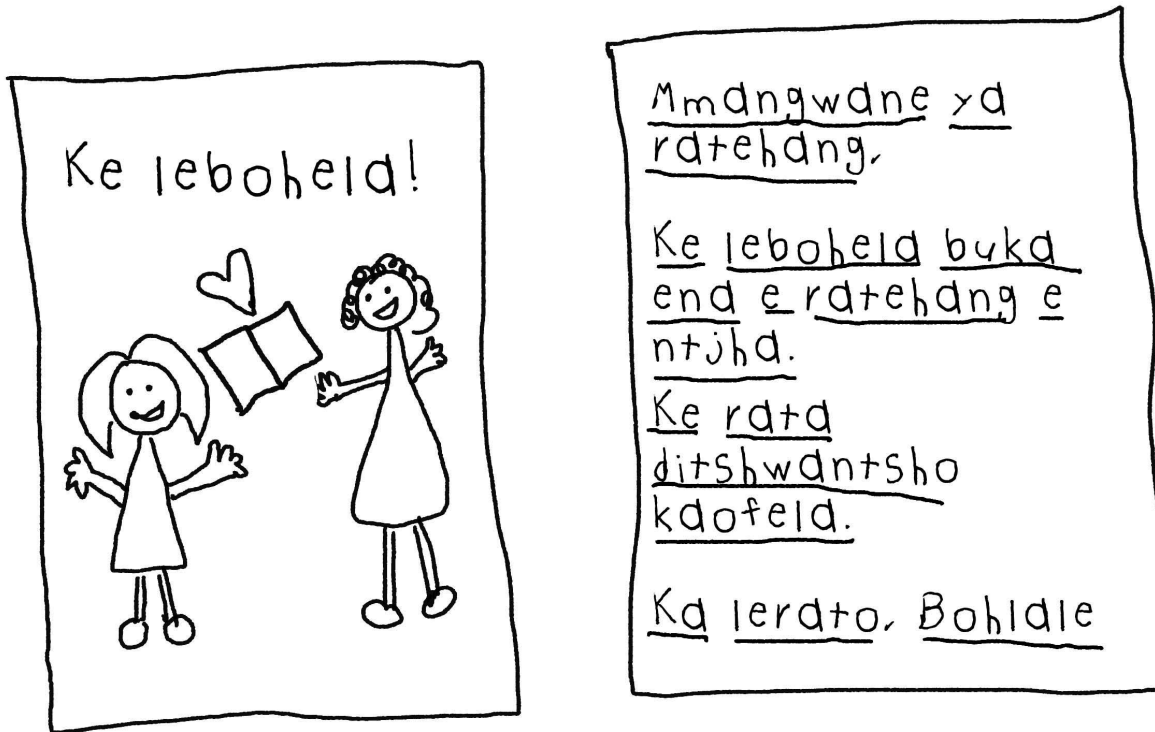 Ke lebohela!
Mmangwane ya
ratehang,
Ke lebohela buka
ena e ratehang e
ntjha.
Ke rata
ditshwantsho
kaofela.
Ka lerato, Bohlale